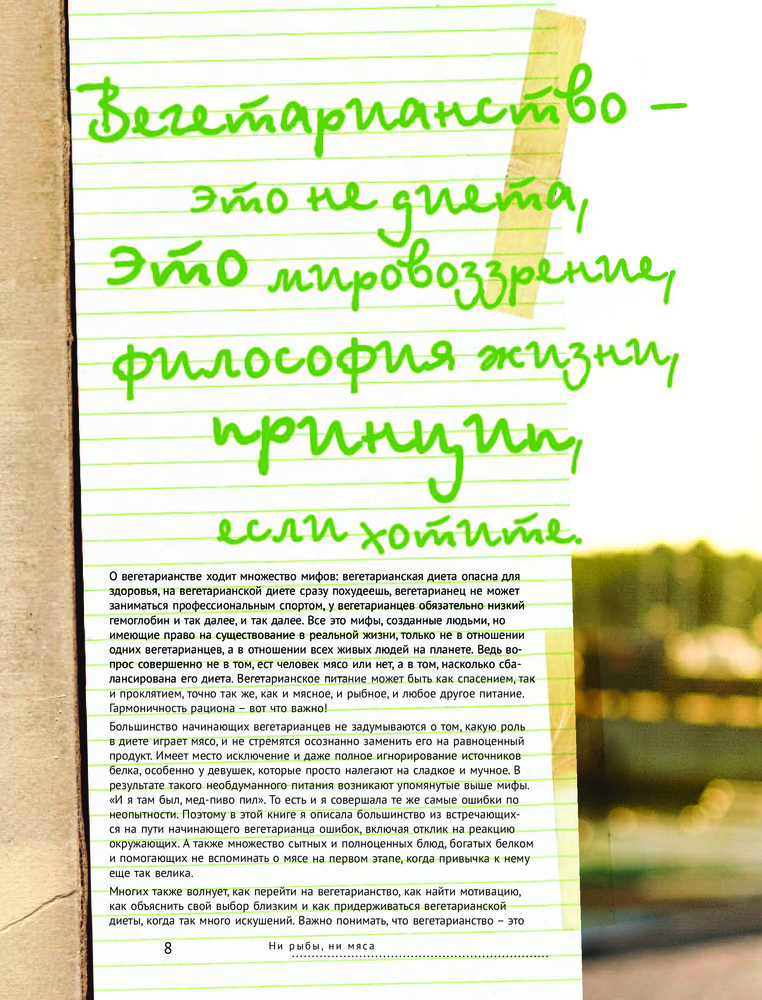 Вегетарианство –
это не диета,
это мировоззрение,
философия жизни,
принцип,
если хотите.
О вегетарианстве ходит множество мифов: вегетарианская диета опасна для
здоровья, на вегетарианской диете сразу похудеешь, вегетарианец не может
заниматься профессиональным спортом, у вегетарианцев обязательно низкий
гемоглобин и так далее, и так далее. Все это мифы, созданные людьми, но
имеющие право на существование в реальной жизни, только не в отношении
одних вегетарианцев, а в отношении всех живых людей на планете. Ведь во-
прос совершенно не в том, ест человек мясо или нет, а в том, насколько сба-
лансирована его диета. Вегетарианское питание может быть как спасением, так
и проклятием, точно так же, как и мясное, и рыбное, и любое другое питание.
Гармоничность рациона – вот что важно!
Большинство начинающих вегетарианцев не задумываются о том, какую роль
в диете играет мясо, и не стремятся осознанно заменить его на равноценный
продукт. Имеет место исключение и даже полное игнорирование источников
белка, особенно у девушек, которые просто налегают на сладкое и мучное. В
результате такого необдуманного питания возникают упомянутые выше мифы.
«И я там был, мед-пиво пил». То есть и я совершала те же самые ошибки по
неопытности. Поэтому в этой книге я описала большинство из встречающих-
ся на пути начинающего вегетарианца ошибок, включая отклик на реакцию
окружающих. А также множество сытных и полноценных блюд, богатых белком
и помогающих не вспоминать о мясе на первом этапе, когда привычка к нему
еще так велика.
Многих также волнует, как перейти на вегетарианство, как найти мотивацию,
как объяснить свой выбор близким и как придерживаться вегетарианской
диеты, когда так много искушений. Важно понимать, что вегетарианство – это
8 Ни рыбы, ни мяса